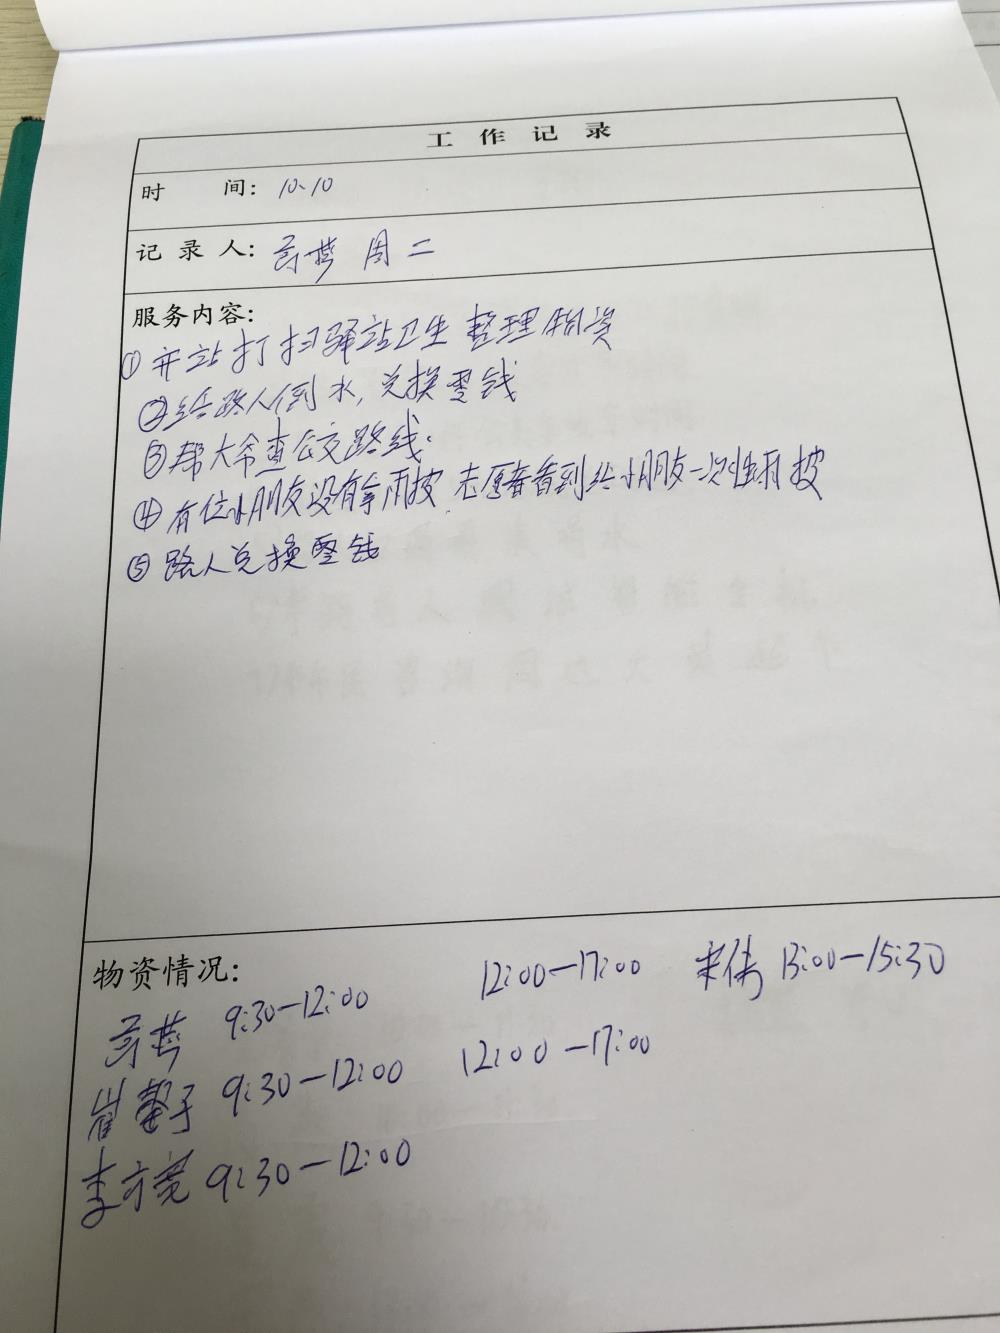 工作记录
时 间: 10.10
记录人: 高燕 周二
服务内容:
①开站打扫驿站卫生 整理物资
②给路人倒水,兑换零钱
③帮大爷查公交路线.
④有位小朋友没有拿雨披.志愿者看到给小朋友一次性雨披
⑤路人兑换零钱
物资情况:
9:30—12:00 12:00—17:00 宋倩 13:00—15:30
崔馨子 9:30—12:00 12:00—17:00
李方亮 9:30—12:00